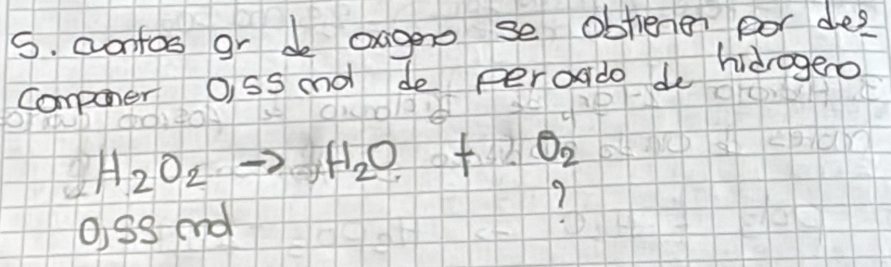 5. cuontos gr de oxigeno se obtienen por des
componer 0,55 mol de peroxido de hidrogeno
H₂O₂ → H₂O + O₂
?
0,55 mol